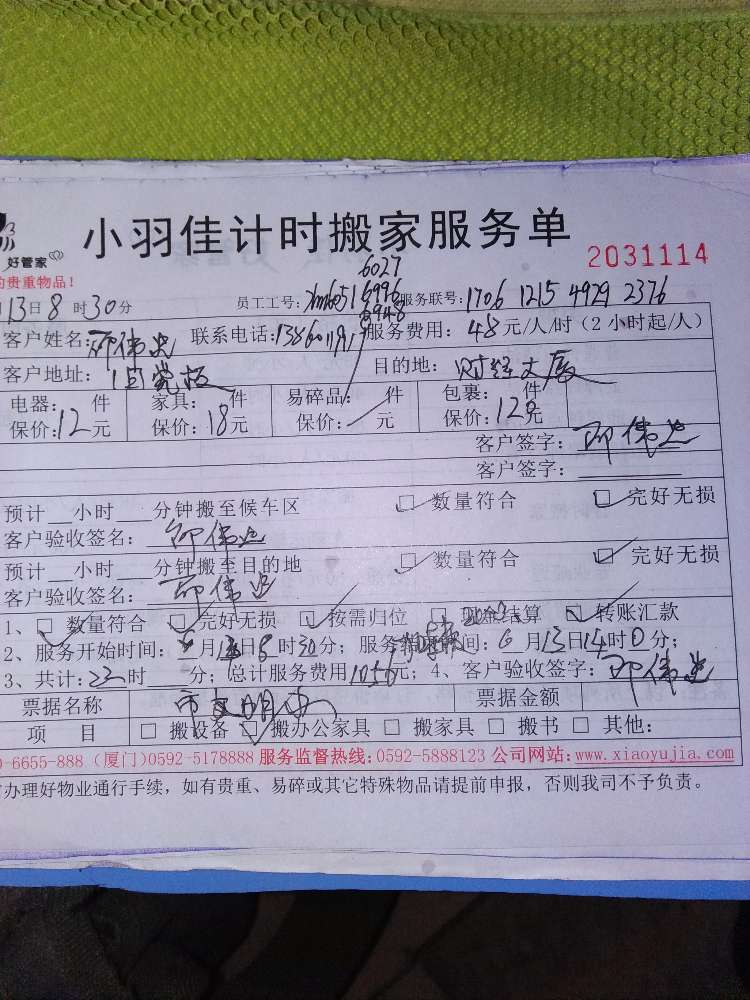 小羽佳计时搬家服务单
好管家
2031114
的贵重物品!
月13日8时30分
6027
员工工号: 6996 服务联号: 1706 1215 4929 2376
2948
客户姓名: 联系电话: 服务费用: 48元/人/时(2小时起/人)
客户地址: 目的地: 财经大厦
电器: 件 家具: 件 易碎品: 件 包裹: 件
保价: 12元 保价: 18元 保价: 元 保价: 12元
客户签字:
客户签字:
预计__小时___分钟搬至候车区 □数量符合 □完好无损
客户验收签名:
预计__小时___分钟搬至目的地 □数量符合 □完好无损
客户验收签名:
1、□数量符合 □完好无损 □按需归位 □现金结算 □转账汇款
2、服务开始时间: 月13日8时30分; 服务 间: 6月13日14时0分;
3、共计: 22时___分; 总计服务费用1056元; 4、客户验收签字:
票据名称 市文明办 票据金额
项 目 □搬设备 □搬办公家具 □搬家具 □搬书 □其他:
0-6655-888 (厦门)0592-5178888 服务监督热线:0592-5888123 公司网站:www.xiaoyujia.com
办理好物业通行手续,如有贵重、易碎或其它特殊物品请提前申报,否则我司不予负责。